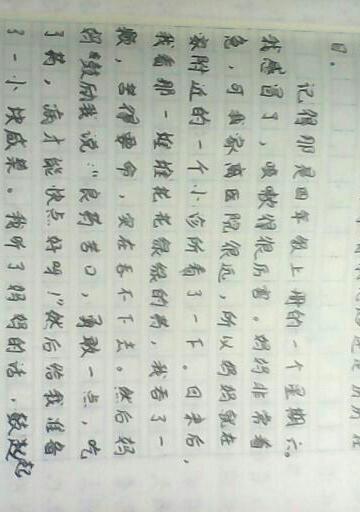 记得那是四年级上册的一个星期六。
我感冒了，咳嗽得很厉害。妈妈非常着
急，可我家离医院很远，所以妈妈就在
家附近的一个小诊所看了一下。回来后，
我看那一堆堆花花绿绿的药，我吞了一
颗，苦得要命，实在吞不下去。然后妈
妈鼓励我说：“良药苦口，勇敢一点，吃
了药，病才能快点好呀！”然后给我准备
了一小块果。我听了妈妈的话，鼓起